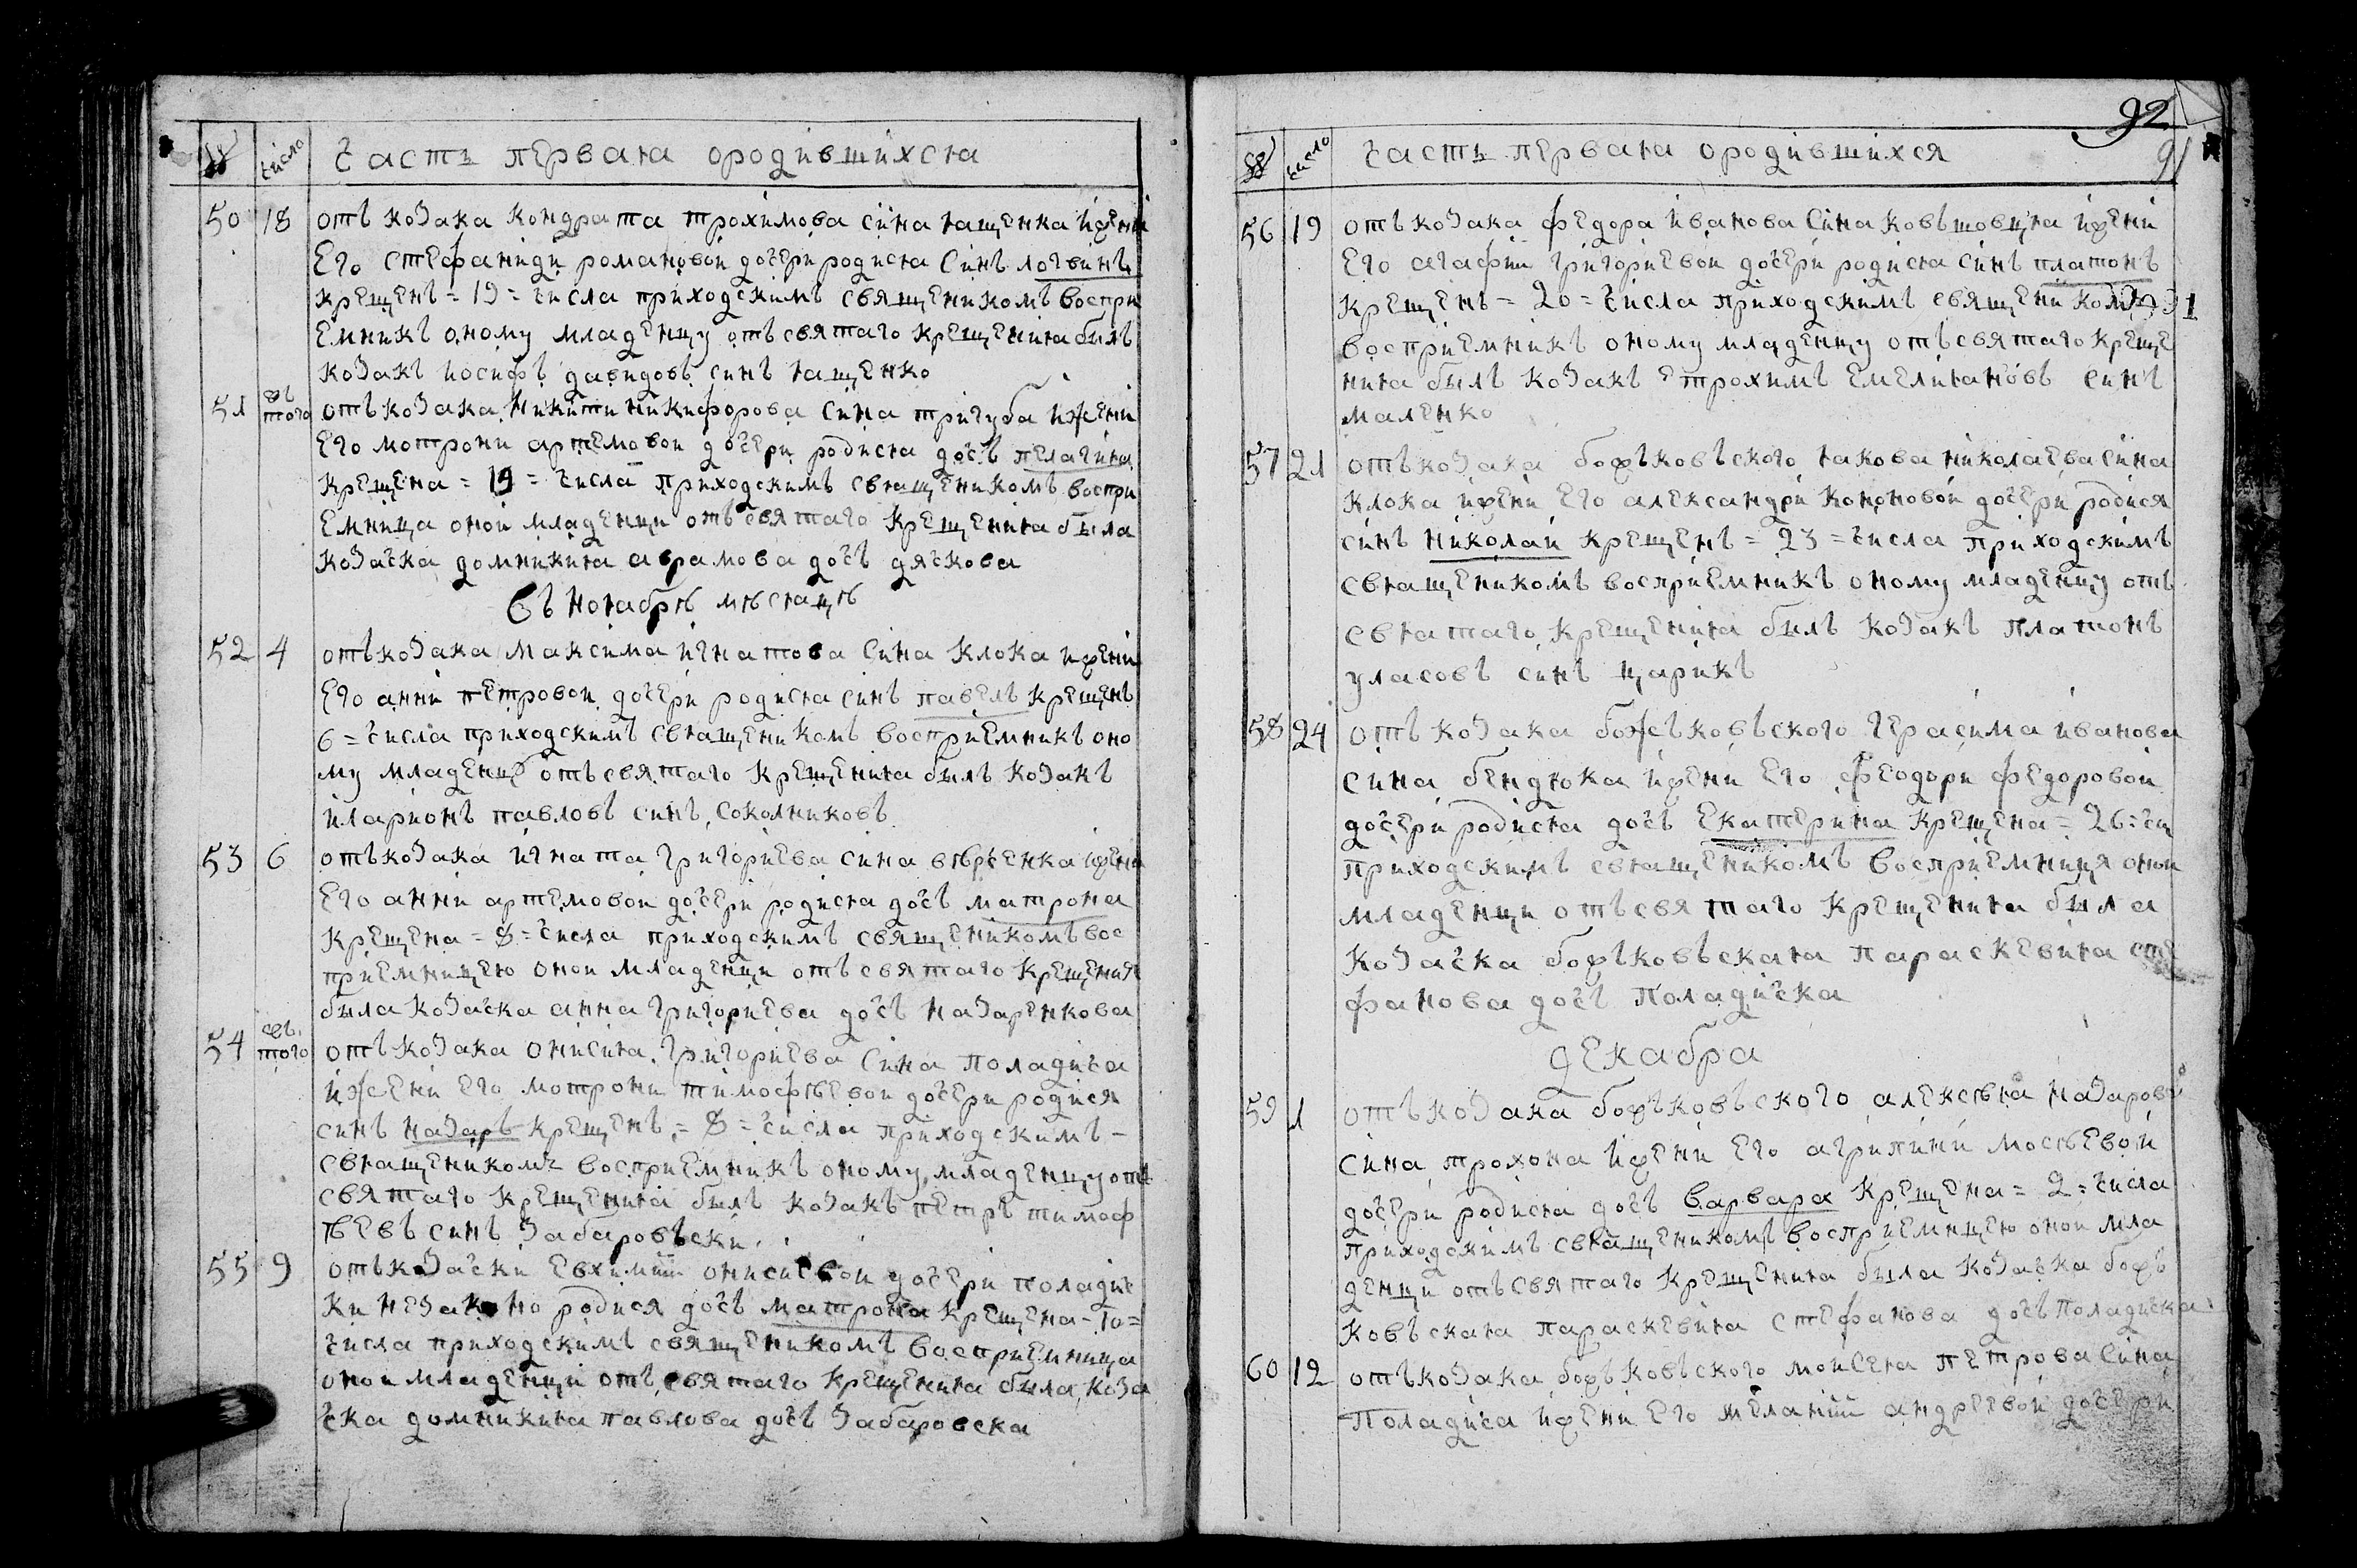 № число Часть первая ородившихся
50 18 отъ козака кондрата трохимова сина ященка йжени
Его стефаниди романовой дочери родися Синъ логвинъ
крещенъ = 19 = числа приходскимъ священикомъ воспри
Емникъ оному младенцу отъ святаго крещения былъ
козакъ иосифъ давидовъ синъ ященко
51 того отъ козака никити никифорова сина тригуба ижени
Его мотрони артемовои дочери родися дочъ пелагия
крещена = 19 = числа приходскимъ священикомъ воспри
Емница оной младенци отъ святаго крещения была
козачка домникия аврамова дочъ дячкова
Въ ноябрѣ мѣсяцѣ
52 4 отъ козака максима игнатова Сина клока ижени
Его анни петровои дочери родися синъ павелъ крещенъ
6 = числа приходскимъ священикомъ восприемникъ оно
му младенцу отъ святаго крещения былъ козакъ
иларионъ павловъ синъ соколниковъ
53 6 отъ козака игната григориева сина
Его анни артемовои дочери родися дочъ матрона
крещена = 8 = числа приходскимъ священикомъ вос
приемницею оной младенци отъ святаго крещения
была козачка анна григориева дочъ назаренкова
54 того отъ козака онисия григориева Сина поладича
ижени его мотрони тимофѣевои дочери родися
синъ назаръ крещенъ = 8 = числа приходскимъ –
священикомъ восприемникъ оному младенцу отъ
святаго крещения былъ козакъ петръ тимоф
ѣевъ синъ забаровъски
55 9 отъ козачки Евхимии онисиевои дочери поладич
ки незаконо родися дочъ матрона крещена = 10 =
числа приходскимъ священикомъ восприемница
оной младенци отъ святаго крещения была коза
чка домникия павлова дочъ забаровска
92
91
№ число Часть первая ородившихся
56 19 отъ козака федора иванова Сина ковъшовъца ижени
Его агафии григориевои дочери родися синъ платонъ
крещенъ = 20 = числа приходскимъ священикомъ
восприемникъ оному младенцу отъ святаго креще
ния былъ козакъ трохимъ Емелияновъ синъ
маленко
57 21 отъ козака божъковъского якова николаева сина
клока ижени Его александри кононовой дочери родися
синъ николай крещенъ = 23 = числа приходскимъ
священикомъ восприемникъ оному младенцу отъ
святаго крещения былъ козакъ платонъ
уласовъ синъ царикъ
58 24 отъ козака божъковъского герасима иванова
сина бендюка ижени Его феодори федоровой
дочери родися дочъ Екатерина крещена = 26 = чи
приходскимъ священикомъ восприемниця оной
младенци отъ святаго крещения была
козачка божъковъская параскевия сте
фанова дочъ поладичка
декабра
59 1 отъ козака божъковъского алексѣя назарова
сина трохона ижени Его агрипини мосѣевой
дочери родися дочъ варвара крещена = 2 = числа
приходскимъ священикомъ восприемницею оной мла
денци отъ святаго крещения была козачка божъ
ковъская параскевия стефанова дочъ поладичка
60 12 отъ козака божъковъского мойсея петрова Сина
поладича ижени Его мелании андреевой дочери